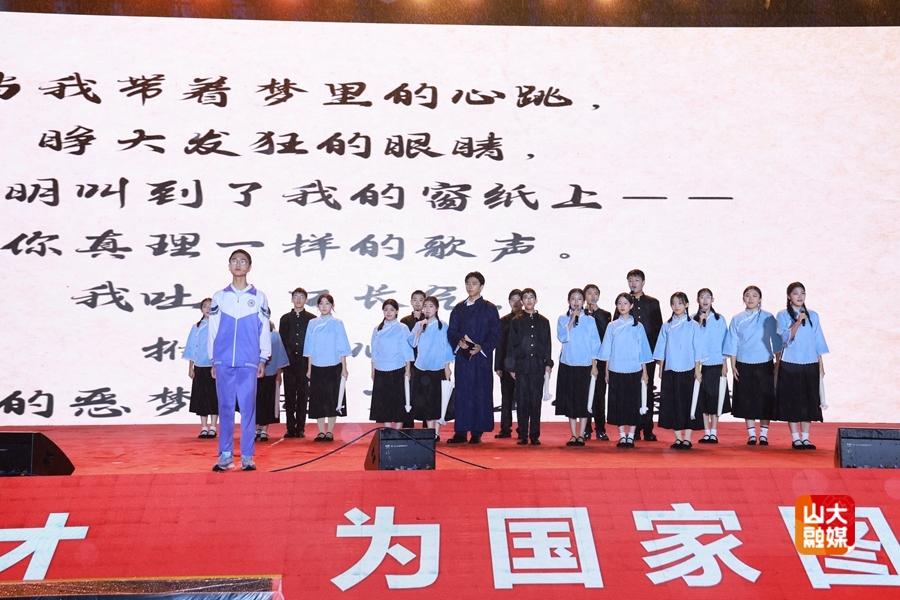 我带着梦里的心跳，
睁大发狂的眼睛，
明叫到了我的窗纸上——
你真理一样的歌声。
我吐
的恶梦
才 为国家图
山大
融媒